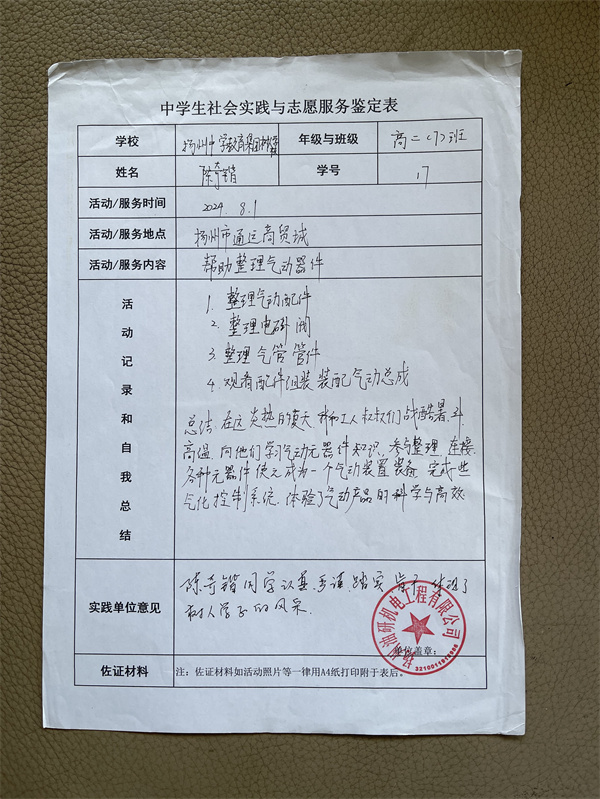 中学生社会实践与志愿服务鉴定表
学校 扬州中学教育集团树人学校 年级与班级 高二(7)班
姓名 陈奇锴 学号 17
活动/服务时间 2024.8.1
活动/服务地点 扬州市通运商贸城
活动/服务内容 帮助整理气动器件
活动记录和自我总结
1. 整理气动配件
2. 整理电磁阀
3. 整理气管管件
4. 观看配件组装装配气动总成
总结:在这炎热的夏天 我和工人叔叔们战酷暑.斗
高温.向他们学习气动元器件知识.参与整理.连接
各种元器件使之成为一个气动装置装备.完成一些
气化控制系统.体验了气动产品的科学与高效.
实践单位意见
陈奇锴同学认真 踏实 体现了
树人学子的风采.
单位盖章:
油研机电工程有限公司
佐证材料 注:佐证材料如活动照片等一律用A4纸打印附于表后。